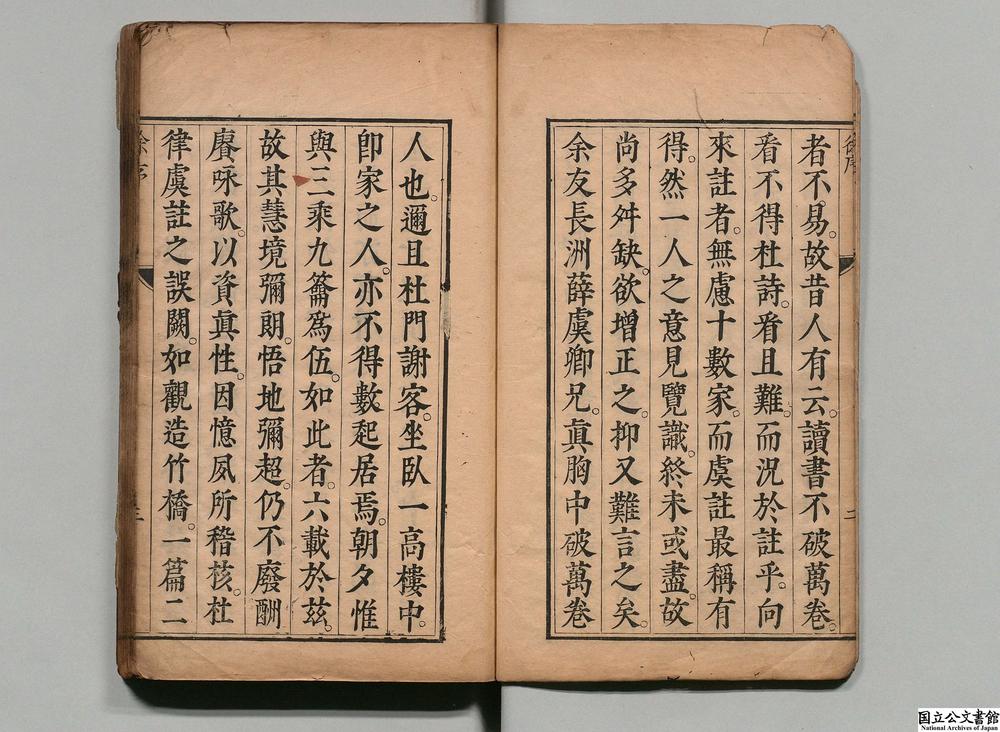 者不易。故昔人有云。讀書不破萬卷。
看不得杜詩。看且難。而況於註乎。向
來註者。無慮十數家。而虞註最稱有
得。然一人之意見覽識。終未或盡。故
尚多舛缺。欲增正之。抑又難言之矣。
余友長洲薛虞卿兄。眞胸中破萬卷
二
人也。邇且杜門謝客。坐臥一高樓中。
卽家之人。亦不得數起居焉。朝夕惟
與三乘九籥爲伍。如此者。六載於茲。
故其慧境彌朗。悟地彌超。仍不廢酬
賡咏歌。以資眞性。因憶夙所稽核。杜
律虞註之誤闕。如觀造竹橋。一篇二
国立公文書館
National Archives of Japan